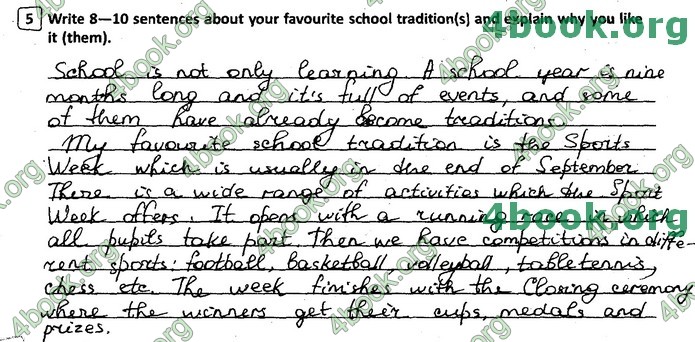 4book.org
5 Write 8—10 sentences about your favourite school tradition(s) and explain why you like
it (them).
School is not only learning. A school year is nine
months long and it's full of events, and some
of them have already become traditions.
My favourite school tradition is the Sports
Week which is usually in the end of September.
There is a wide range of activities which the Sport
Week offers. It opens with a running race in which
all pupils take part. Then we have competitions in diffe-
rent sports: football, basketball, volleyball, table tennis,
chess etc. The week finishes with the Closing ceremony
where the winners get their cups, medals and
prizes.
4book.org